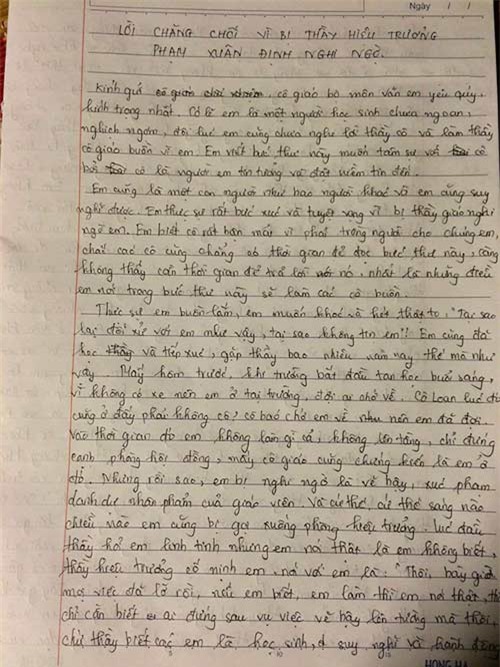 Ngày / /
LỜI CHĂNG CHỐI VÌ BỊ THẦY HIỆU TRƯỞNG
PHẠM XUÂN ĐỊNH NGHI NGỜ.
Kính quý cô giáo chủ nhiệm, cô giáo bộ môn văn em yêu quý,
kính trọng nhất. Có lẽ em là một người học sinh chưa ngoan,
nghịch ngợm, đôi lúc em cũng chưa nghe lời thầy cô và làm thầy
cô giáo buồn vì em. Em viết bức thư này muốn tâm sự với cô
bởi cô là người em tin tưởng và đặt niềm tin đến.
Em cũng là một con người như bao người khác và em cũng suy
nghĩ được. Em thực sự rất bức xúc và tuyệt vọng vì bị thầy giáo nghi
ngờ em. Em biết cô rất bận mải vì phải trông người cho chúng em,
chắc các cô cũng chẳng có thời gian để đọc bức thư này, càng
không thấy cần thời gian để trả lời nó, nhất là những điều
em nói trong bức thư này sẽ làm các cô buồn.
Thực sự em buồn lắm, em muốn khóc và hét thật to: "Tại sao
lại đối xử với em như vậy, tại sao không tin em"! Em cũng đã
học thầy và tiếp xúc, gặp thầy bao nhiêu năm nay thế mà như
vậy. Mấy hôm trước, khi trường bắt đầu tan học buổi sáng,
vì không có xe nên em ở tại trường, đợi ai chở về. Cô Loan lúc đó
cũng ở đấy phải không cô? cô bảo chở em về nhưng nên em đã đợi.
vào thời gian đó em không làm gì cả, không lên tầng, chỉ đứng
cạnh phòng hội đồng, mấy cô giáo cũng chứng kiến là em ở
đó. Nhưng rồi sao, em bị nghi ngờ là vẽ bậy, xúc phạm
danh dự nhân phẩm của giáo viên. Và cứ thế, cứ thế sáng nào
chiều nào em cũng bị gọi xuống phòng hiệu trưởng. Lúc đầu
thầy hỏi em linh tinh nhưng em nói thật là em không biết,
thầy hiệu trưởng cố mịnh em, nói với em là: "Thôi, bây giờ
mọi việc đã lỡ rồi, nếu em biết, em làm thì em nói thật, thầy
chỉ cần biết ai đứng sau vụ việc vẽ bậy lên tường mà thôi,
chứ thầy biết các em là học sinh, suy nghĩ và hành động
HỒNG HÀ